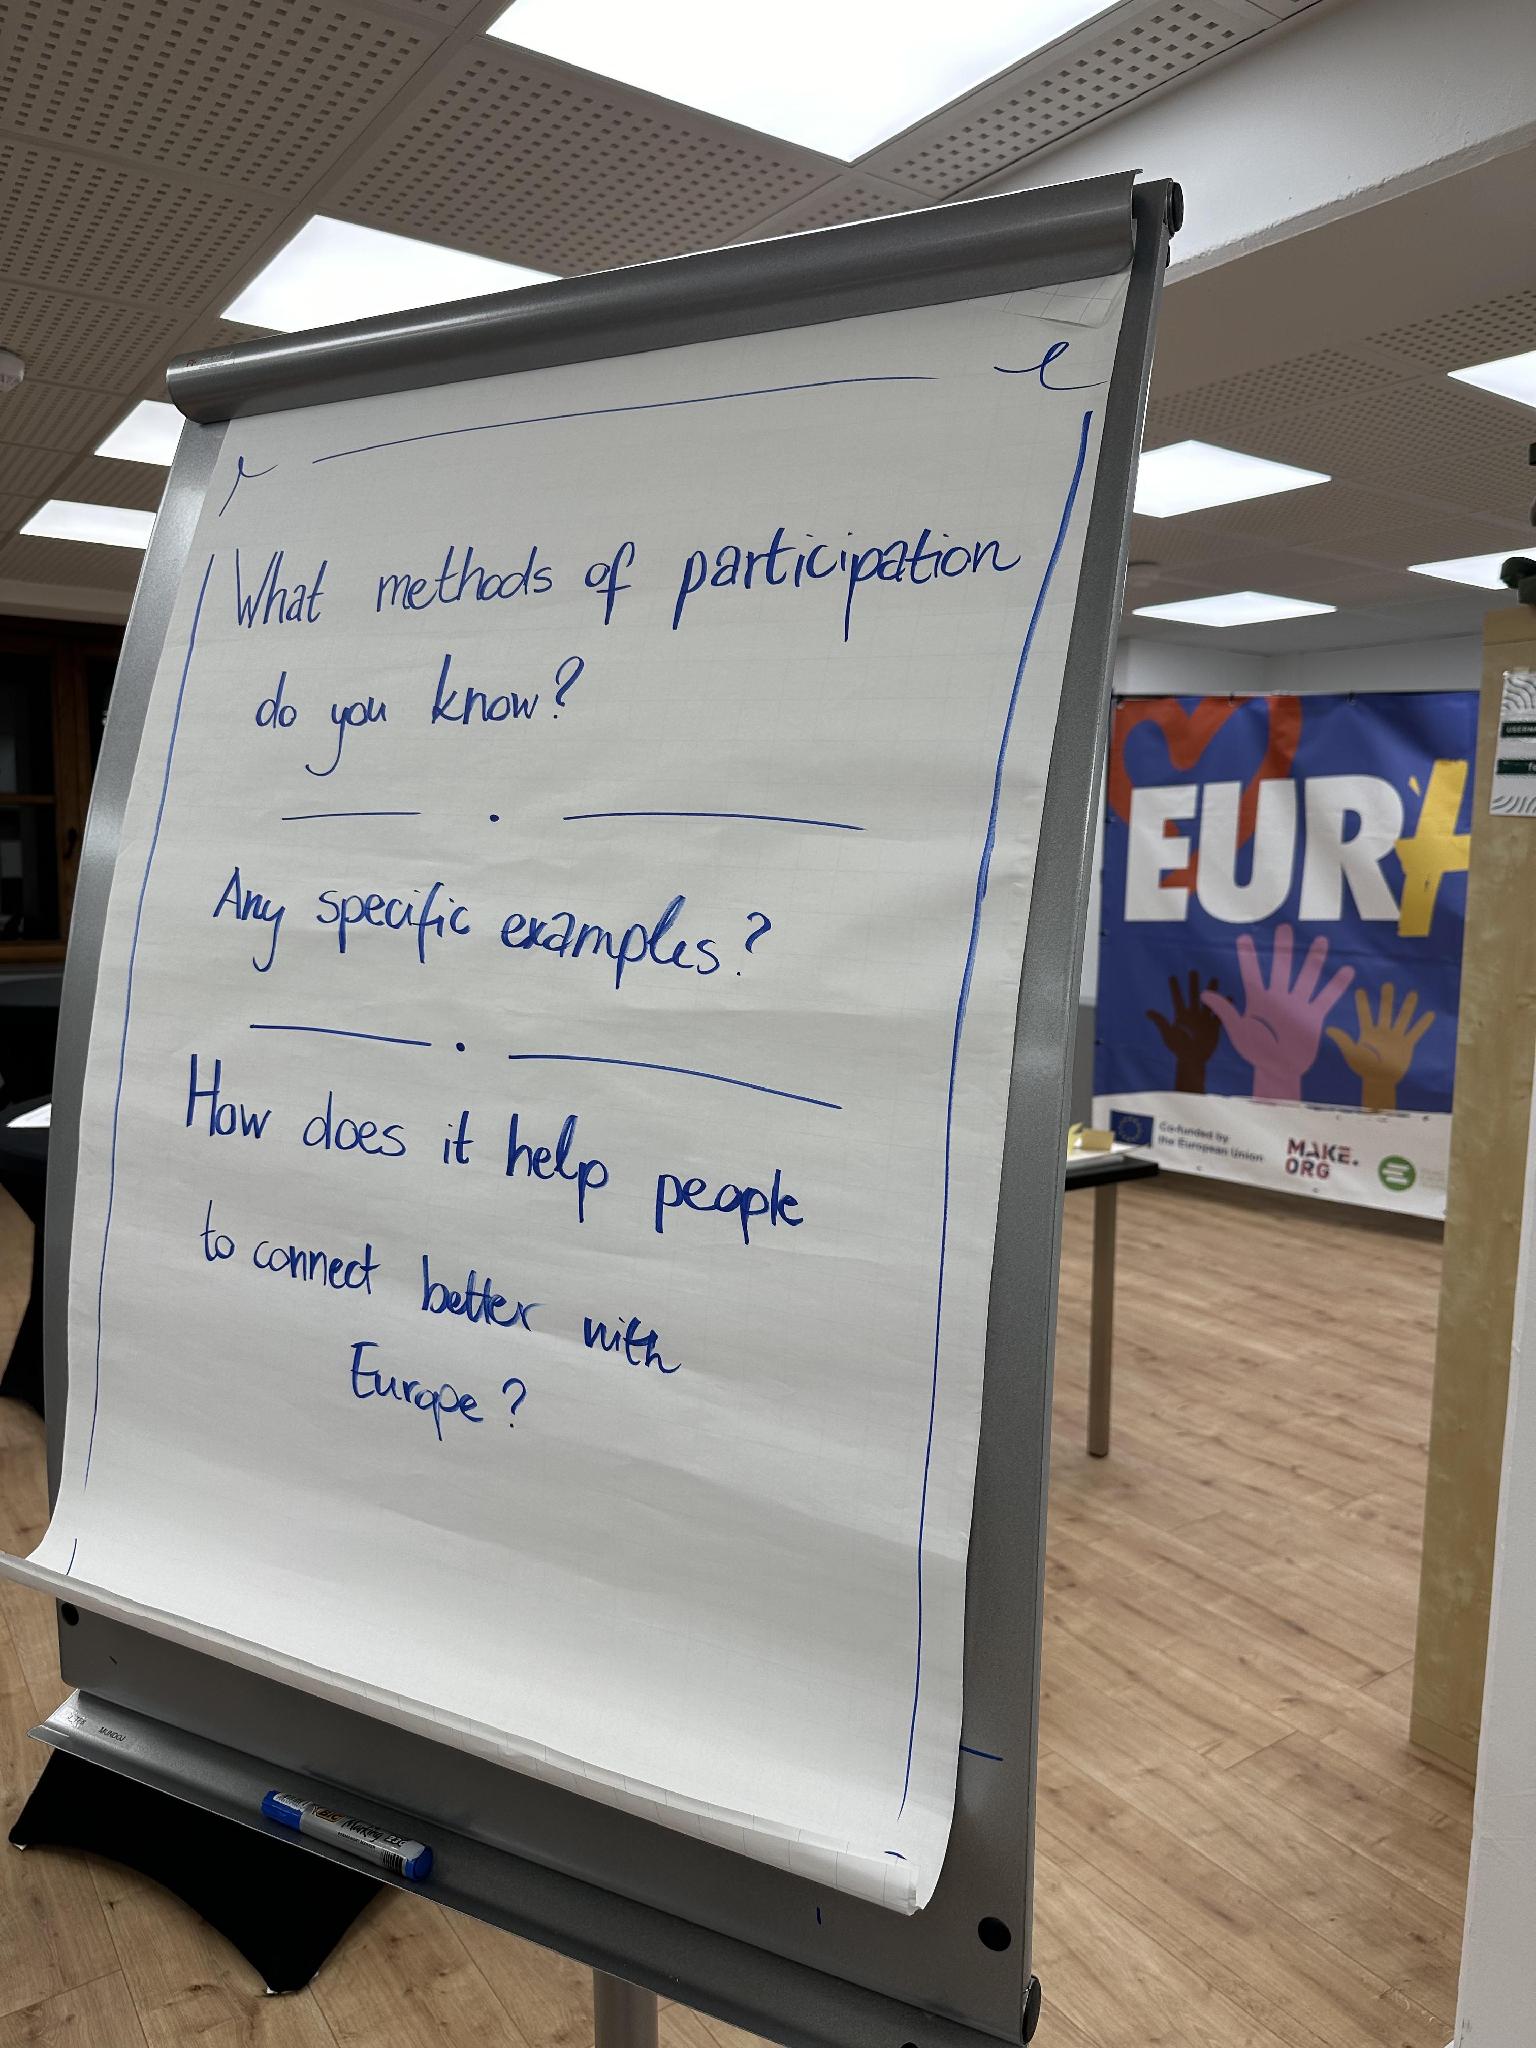 What methods of participation
do you know?
Any specific examples?
How does it help people
to connect better with
Europe?
EUR
Co-funded by
the European Union
MAKE.
ORG
BIC Marking